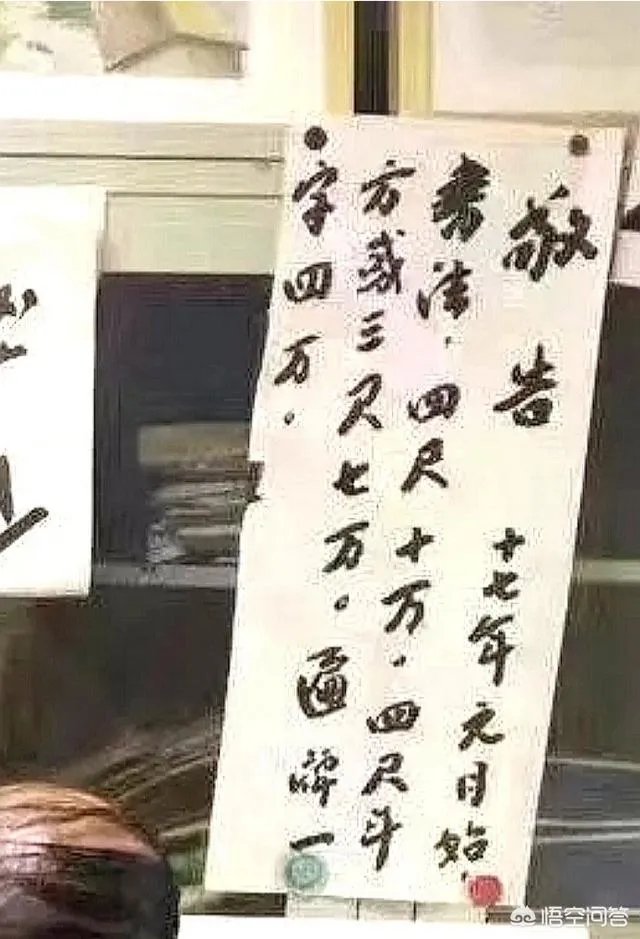 敬告 十七年元月始，
書法，四尺十万，四尺斗
方或三尺七万。匾牌一
字四万。
悟空问答